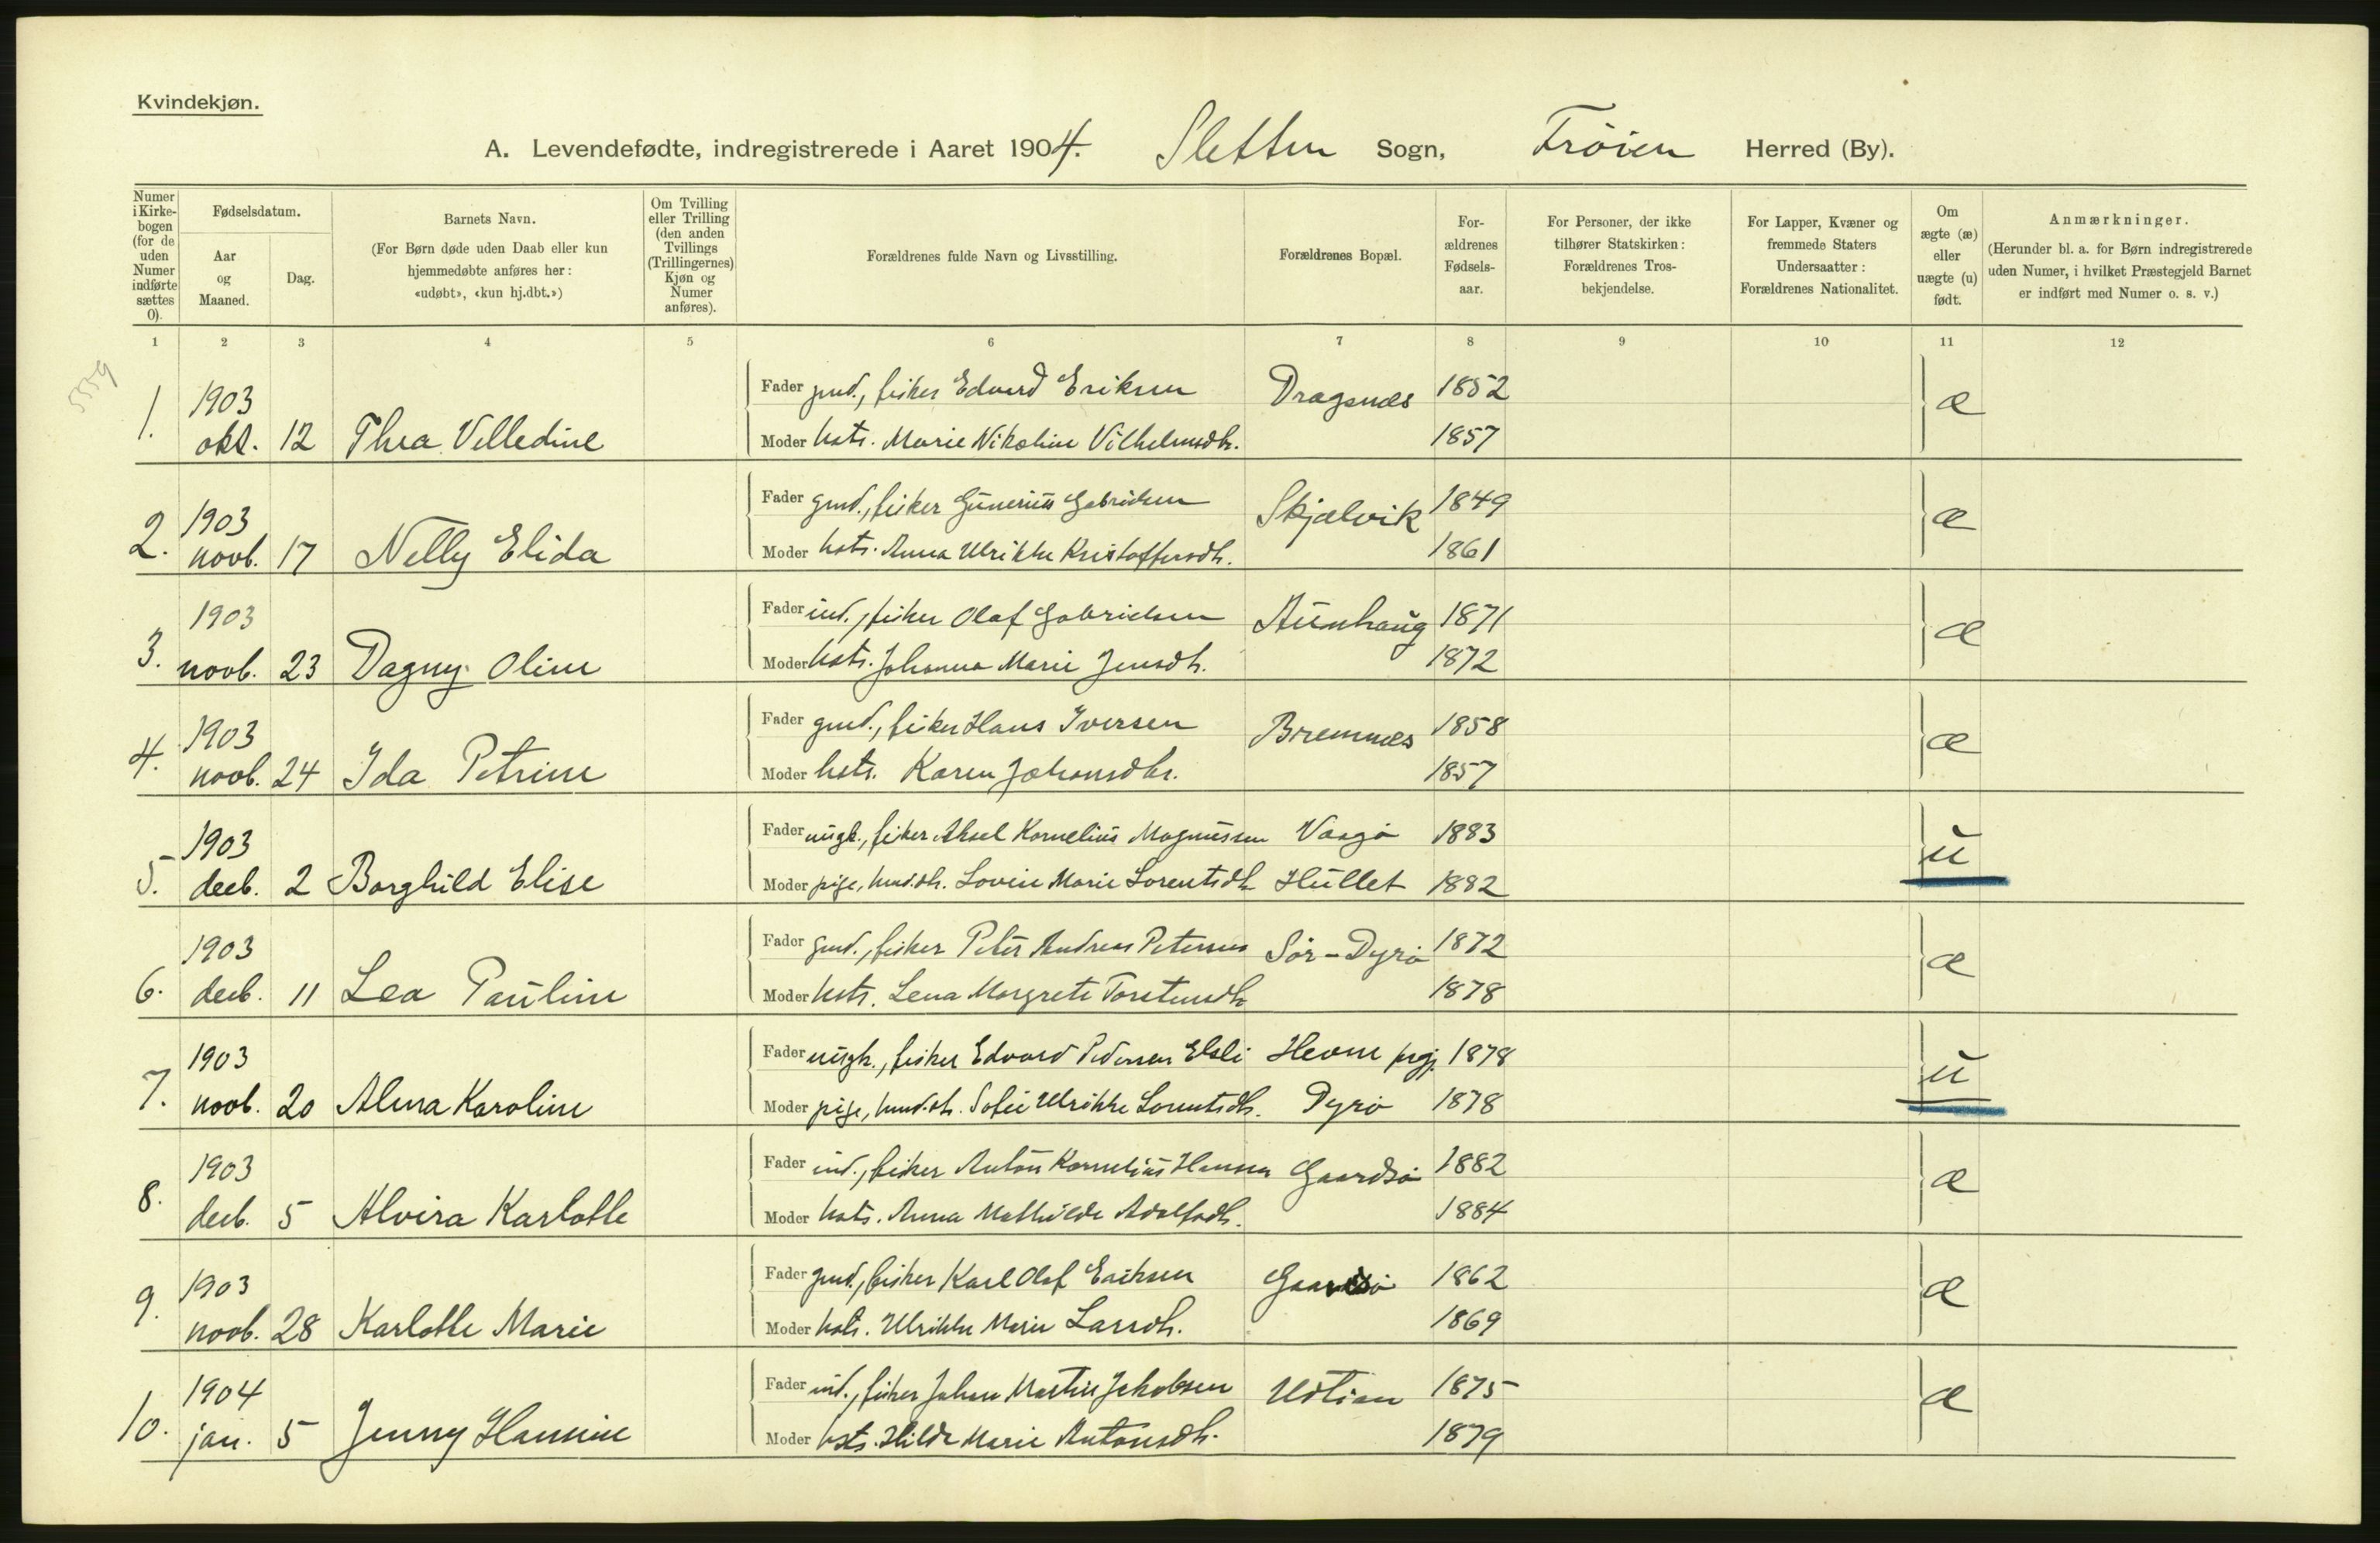 Kvindekjøn.
A. Levendefødte, indregistrerede i Aaret 1904. Sletten Sogn, Frøien Herred (By).
Numer i Kirkebogen (for de uden Numer indførte sættes 0).
Fødselsdatum.
Aar og Maaned.
Dag.
Barnets Navn.
(For Børn døde uden Daab eller kun
hjemmedøbte anføres her:
«udøbt», «kun hj.dbt.»)
Om Tvilling
eller Trilling
(den anden
Tvillings
(Trillingernes)
Kjøn og
Numer
anføres).
Forældrenes fulde Navn og Livsstilling.
Forældrenes Bopæl.
For-
ældrenes
Fødsels-
aar.
For Personer, der ikke
tilhører Statskirken:
Forældrenes Tros-
bekjendelse.
For Lapper, Kvæner og
fremmede Staters
Undersaatter:
Forældrenes Nationalitet.
Om
ægte (æ)
eller
uægte (u)
født.
Anmærkninger.
(Herunder bl. a. for Børn indregistrerede
uden Numer, i hvilket Præstegjeld Barnet
er indført med Numer o. s. v.)
1 2 3 4 5 6 7 8 9 10 11 12
5559
1903 Fader gmd., fisker Edvard Eriksen Dragsnæs 1852 æ
1. okt. 12 Thea Velledine Moder hstr. Marie Nikoline Vilhelmsdtr. 1857
1903 Fader gmd., fisker Gunerius Gabrielsen Skjælvik 1849 æ
2. novb. 17 Nelly Elida Moder hstr. Anna Ulrikke Kristoffersdtr. 1861
1903 Fader ind., fisker Olaf Gabrielsen Aunhaug 1871 æ
3. novb. 23 Dagny Oline Moder hstr. Johanna Marie Jensdtr. 1872
1903 Fader gmd., fisker Hans Iversen Bremnes 1858 æ
4. novb. 24 Ida Petrine Moder hstr. Karen Johansdtr. 1857
1903 Fader ungk., fisker Aksel Kornelius Magnussen Vasø 1883 u
5. decb. 2 Borghild Elise Moder pige, hmd.dtr. Lovise Marie Lorentsdtr. Hullet 1882
1903 Fader gmd., fisker Peter Andreas Petersen Sør-Dyrø 1872 æ
6. decb. 11 Lea Pauline Moder hstr. Lena Margrete Torstensdtr. 1878
1903 Fader ungk., fisker Edvard Pedersen Elsli Hevne prgj. 1878 u
7. novb. 20 Alma Karoline Moder pige, hmd.dtr. Sofie Ulrikke Lorentsdtr. Dyrø 1878
1903 Fader ind., fisker Anton Kornelius Hansen Gaardsø 1882 æ
8. decb. 5 Alvira Karlotte Moder hstr. Anna Mathilde Adolfsdtr. 1884
1903 Fader gmd., fisker Karl Olaf Eriksen Gaardsø 1862 æ
9. novb. 28 Karlotte Marie Moder hstr. Ulrikke Marie Larsdtr. 1869
1904 Fader ind., fisker Johan Martin Jakobsen Udtian 1875 æ
10. jan. 5 Jenny Hansine Moder hstr. Hilda Marie Antonsdtr. 1879